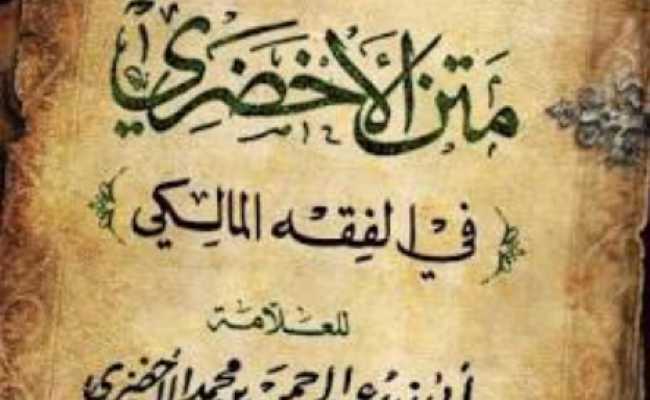 مَتْن الأَخْضَرِي
فِي الفِقْه المَالِكِي
للعلامة
أبي زيد عبد الرحمن بن محمد الأخضري